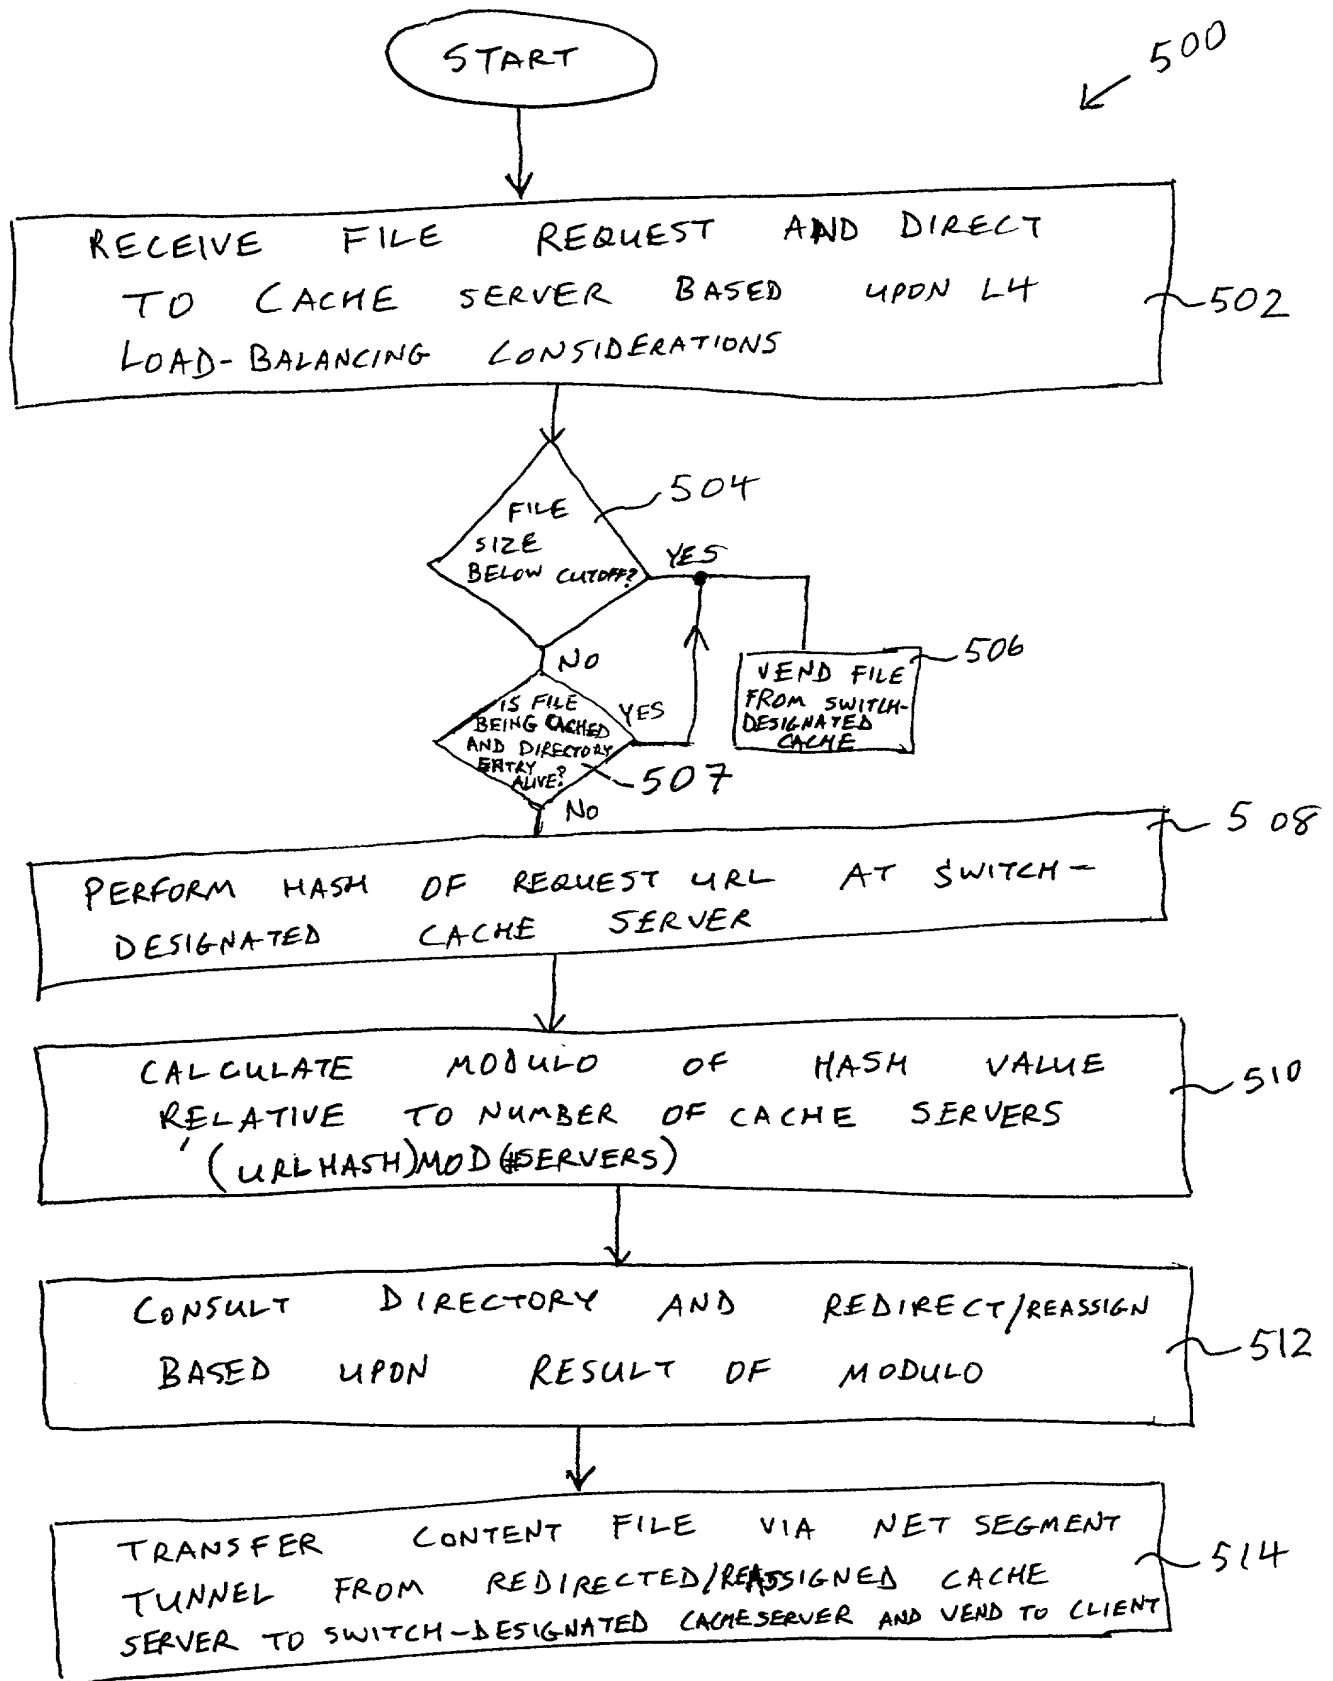 START
500
RECEIVE FILE REQUEST AND DIRECT
TO CACHE SERVER BASED UPON L4
LOAD-BALANCING CONSIDERATIONS
502
504
FILE
SIZE
BELOW CUTOFF?
YES
NO
506
VEND FILE
FROM SWITCH-
DESIGNATED
CACHE
IS FILE
BEING CACHED
AND DIRECTORY
ENTRY
ALIVE?
YES
507
NO
508
PERFORM HASH OF REQUEST URL AT SWITCH-
DESIGNATED CACHE SERVER
CALCULATE MODULO OF HASH VALUE
RELATIVE TO NUMBER OF CACHE SERVERS
(URLHASH)MOD(#SERVERS)
510
CONSULT DIRECTORY AND REDIRECT/REASSIGN
BASED UPON RESULT OF MODULO
512
TRANSFER CONTENT FILE VIA NET SEGMENT
TUNNEL FROM REDIRECTED/REASSIGNED CACHE
SERVER TO SWITCH-DESIGNATED CACHESERVER AND VEND TO CLIENT
514